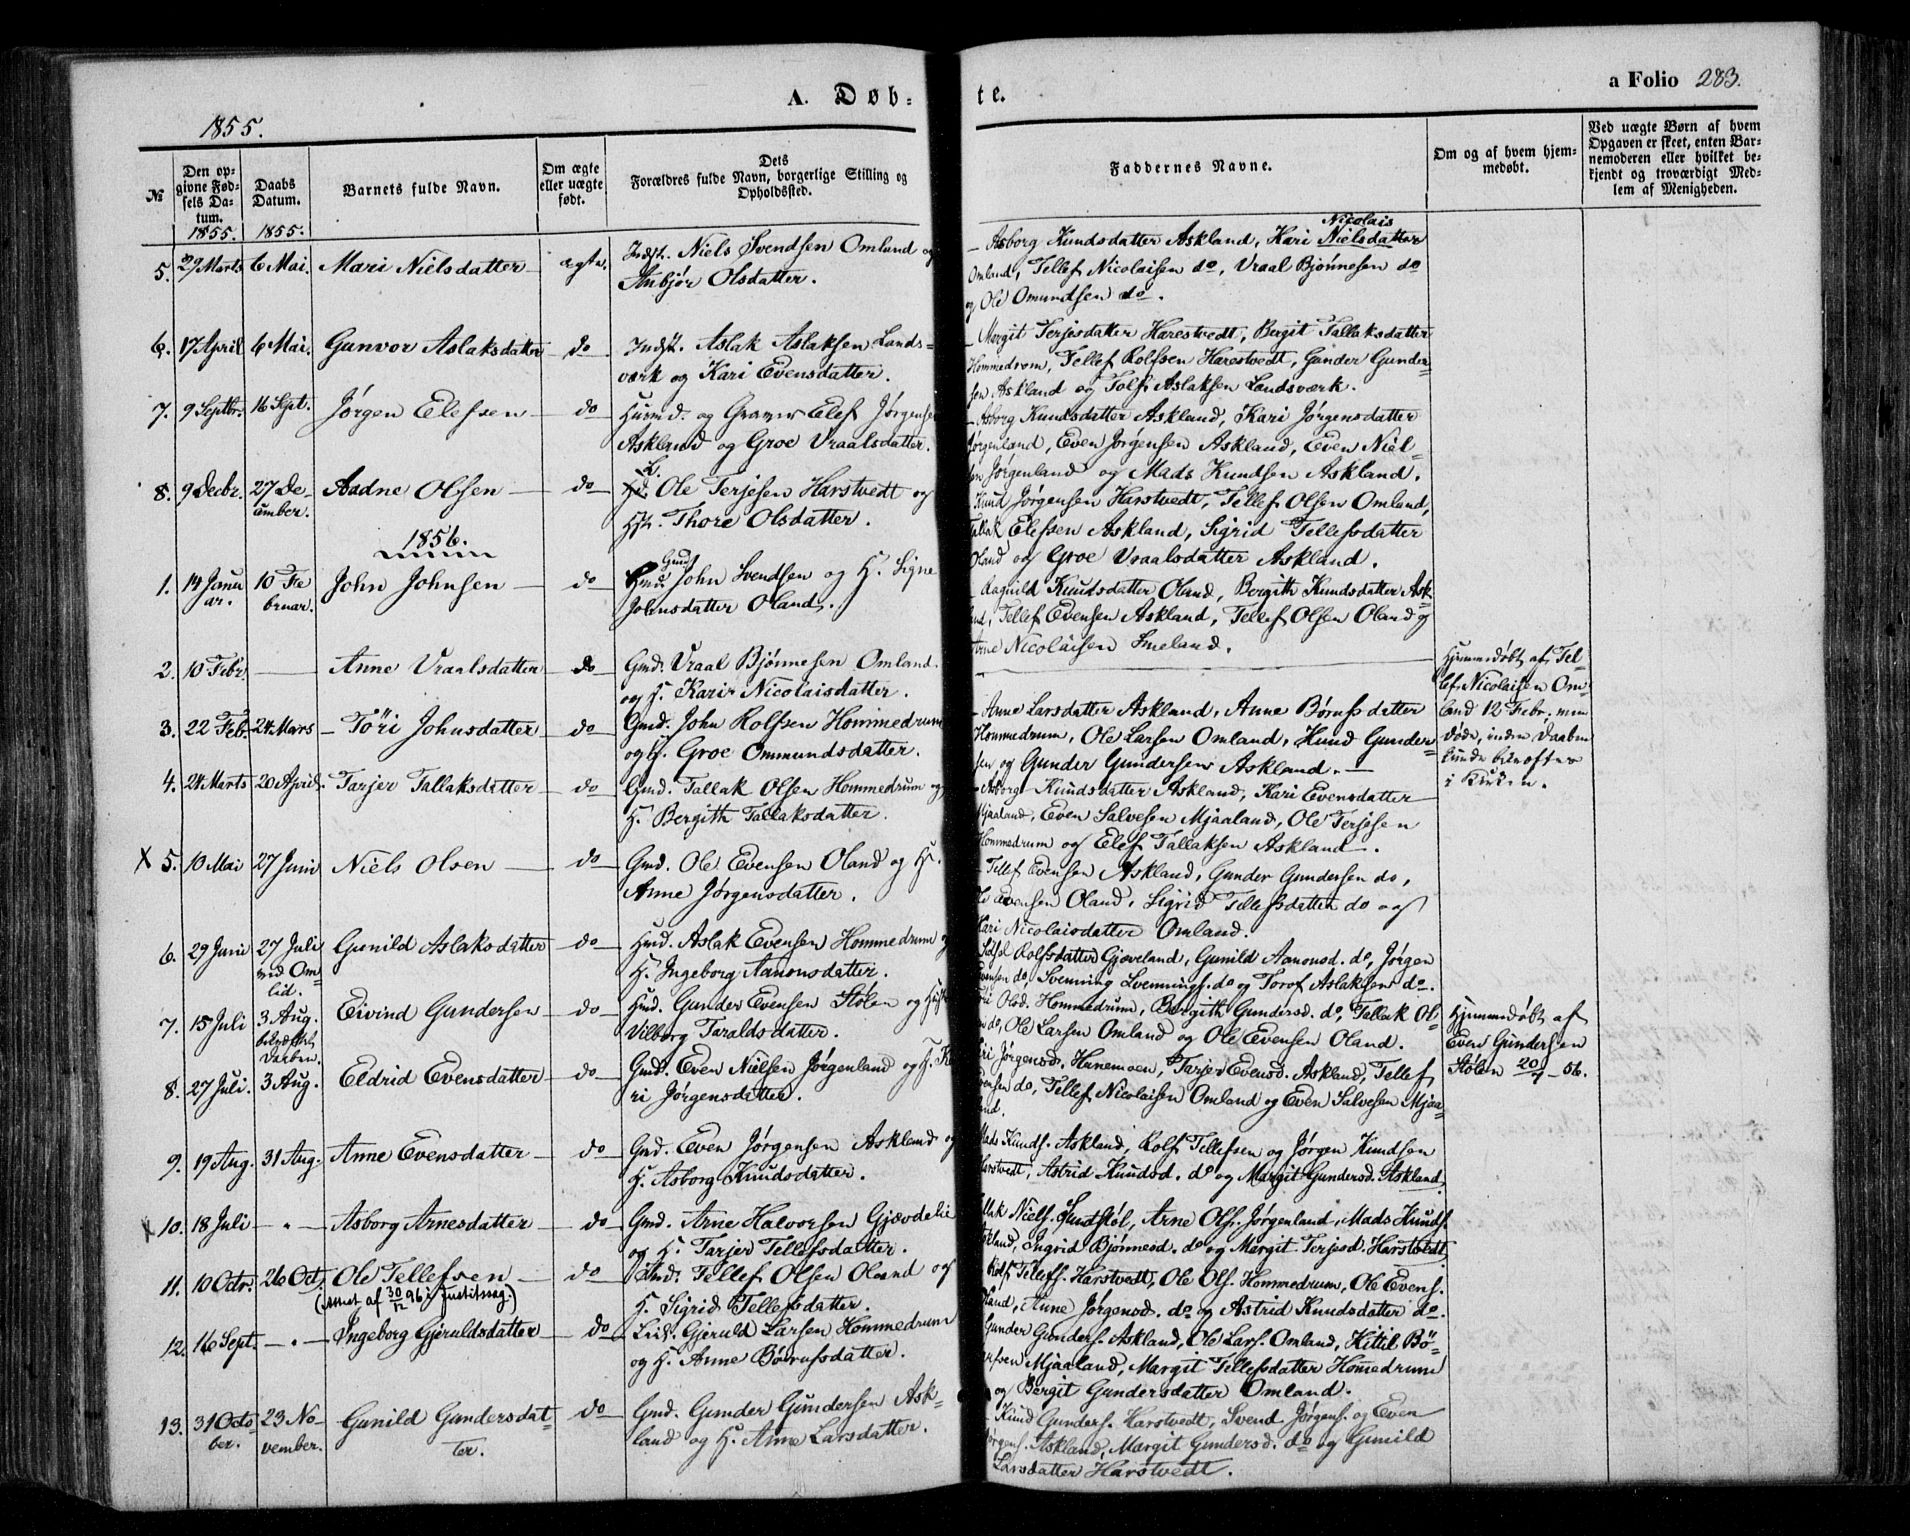 A. Døb-
te.
a Folio 283.
1855.
№
Den op-
givne Fød-
sels Da-
tum.
1855.
Daabs
Datum.
1855.
Barnets fulde Navn.
Om ægte
eller uægte
født.
Dets
Forældres fulde Navn, borgerlige Stilling og
Opholdssted.
Faddernes Navne.
Om og af hvem hjem-
medøbt.
Ved uægte Børn af hvem
Opgaven er skeet, enten Bar-
nemoderen eller hvilket be-
kjendt og troværdigt Med-
lem af Menigheden.
5. 29 Marts 6 Mai. Mari Nielsdatter ægte. Indst. Niels Svendsen Omland og
Anbjør Olsdatter.
Nicolais
Asborg Knudsdatter Askland, Kari Nielsdatter
Omland, Tellef Nicolaisen do, Vraal Bjønnesen do
og Ole Omundsen do.
6. 17 April 6 Mai. Gunvor Aslaksdatter do Indst. Aslak Aslaksen Lands-
værk og Kari Evensdatter.
Margit Terjesdatter Harestvedt, Bergit Tallaksdatter
Hommedrom, Tellef Rolfsen Harestvedt, Gunder Gunder-
sen Askland og Tolf Aslaksen Landsværk.
7. 9 Septbr. 16 Sept. Jørgen Elefsen do Husmd. og Graver Elef Jørgensen
Askland og Groe Vraalsdatter.
Asborg Knudsdatter Askland, Kari Jørgensdatter
Jørgenland, Even Jørgensen Askland, Even Niel-
sen Jørgenland og Mads Knudsen Askland.
8. 9 Decbr. 27 De-
cember. Aadne Olsen do Ole Terjesen Harstvedt og
Hst. Thore Olsdatter.
Knud Jørgensen Harstvedt, Tellef Olsen Omland,
Tallak Elefsen Askland, Sigrid Tellefsdatter
Oland og Groe Vraalsdatter Askland.
1856.
1. 14 Janu-
ar. 10 Fe-
bruar. John Johnsen do Gmd. John Svendsen og H. Signe
Johnsdatter Oland.
Ragnild Knudsdatter Oland, Bergith Knudsdatter Ask-
land, Tellef Evensen Askland, Tellef Olsen Oland og
Arne Nicolaisen Smeland.
2. 10 Febr. Anne Vraalsdatter do Gmd. Vraal Bjønnesen Omland
og H. Kari Nicolaisdatter.
Hjemmedøbt af Tel-
lef Nicolaisen Om-
land 12 Febr. men
døde, inden Daaben
kunde bekræftes
i Kirken.
3. 22 Feb. 24 Mars Töri Johnsdatter do Gmd. John Rolfsen Hommedrum
og H. Groe Ommundsdatter.
Anne Larsdatter Askland, Anne Børufsdatter
Hommedrum, Ole Larsen Omland, Knud Gunder-
sen og Gunder Gundersen Askland.
4. 24 Marts 20 April. Tarjer Tallaksdatter do Gmd. Tallak Olsen Hommedrum og
H. Bergith Tallaksdatter.
Asborg Knudsdatter Askland, Kari Evensdatter
Mjaaland, Even Salvesen Mjaaland, Ole Terjesen
Hommedrum og Elef Tallaksen Askland.
X 5. 10 Mai 27 Juni Niels Olsen do Gmd. Ole Evensen Oland og H.
Anne Jørgensdatter.
Tellef Evensen Askland, Gunder Gundersen do,
Ole Evensen Oland, Sigrid Tellefsdatter do og
Kari Nicolaisdatter Omland.
6. 29 Juni 27 Juli
ved Om-
lid. Gunild Aslaksdatter do Hmd. Aslak Evensen Hommedrum og
H. Ingeborg Aanonsdatter.
Sidsel Rolfsdatter Gjøveland, Gunild Aanonsd. do, Jørgen
Evensen do, Svenning Svennings. do og Torof Aslaksen do.
7. 15 Juli 3 Aug.
bekræftet
Daaben. Eivind Gundersen do Hmd. Gunder Evensen Stølen og Hust
Vilborg Taraldsdatter.
Töri Olsd. Hommedrum, Bergith Gundersd. do, Tellak Ol-
sen do, Ole Larsen Omland og Ole Evensen Oland.
Hjemmedøbt af
Even Gundersen
Stølen 20/7 - 56.
8. 27 Juli. 3 Aug. Eldrid Evensdatter do Gmd. Even Nielsen Jørgenland og H. Ka-
ri Jørgensdatter.
Kari Jørgensd. Hanemoen, Tarjer Evensd. Askland, Tellef
Evensen do, Tellef Nicolaisen Omland og Even Salvesen Mjaa-
land.
9. 19 Aug. 31 Aug. Anne Evensdatter do Gmd. Even Jørgensen Askland og
H. Asborg Knudsdatter.
Mads Knuds. Askland, Rolf Tellefsen og Jørgen Knudsen
Harstvedt, Astrid Knudsd. do og Margit Gundersd. Askland.
X 10. 18 Juli - " - Asborg Arnesdatter do Gmd. Arne Halvorsen Gjævdelie
og H. Tarjer Tellefsdatter.
Niels. Gundstøl, Arne Ols. Jørgenland, Mads Knuds.
Askland, Ingrid Bjønnesd. do og Margit Terjesd. Harstvedt.
11. 10 Octr. 26 Oct. Ole Tellefsen do Gmd. Tellef Olsen Oland og
(Attest af 30/12 96 i Justitssag.)
H. Sigrid Tellefsdatter.
Rolf Tellefs. Harstvedt, Ole Ols. Hommedrum, Ole Evens.
Oland, Anne Jørgensd. do og Astrid Knudsdatter do.
12. 16 Sept. - " - Ingeborg Gjeruldsdatter do Lid. Gjeruld Larsen Hommedrum
og H. Anne Børufsdatter.
Gunder Gunders. Askland, Ole Lars. Omland, Kittil Bö-
rufsen Mjaaland, Margit Tellefsdatter Hommedrum
og Bergit Gundersdatter Omland.
13. 31 Octo-
ber. 23 No-
vember. Gunild Gundersdat-
ter. do Gmd. Gunder Gundersen Ask-
land og H. Anne Larsdatter.
Knud Gunders. Harstvedt, Svend Jørgens. og Even
Jørgens. Askland, Margit Gundersd. do og Gunild
Larsdatter Harstvedt.